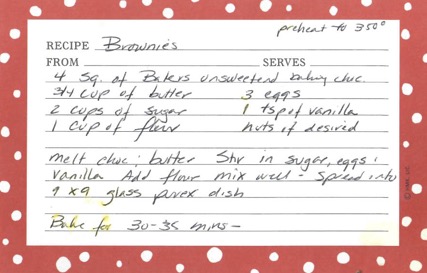 preheat to 350°
RECIPE Brownies
FROM SERVES
4 Sq. of Bakers unsweetend baking choc.
3/4 cup of butter 3 eggs
2 cups of sugar 1 tsp of vanilla
1 cup of flour nuts if desired
melt choc; butter Stir in sugar, eggs;
vanilla Add flour mix well - Spread into
9 x 9 glass pyrex dish
Bake for 30-35 mins -